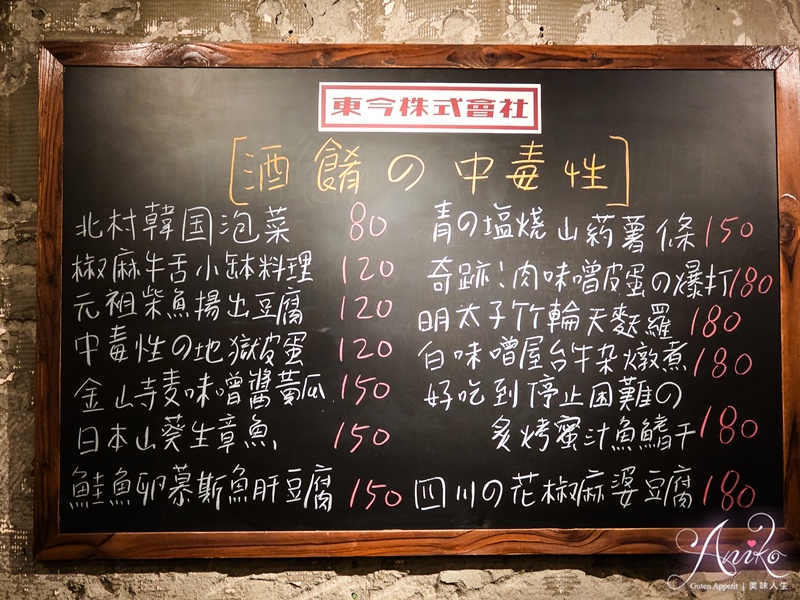 東今株式會社
[酒餚の中毒性]
北村韓国泡菜 80
椒麻牛舌小缽料理 120
元祖柴魚揚出豆腐 120
中毒性の地獄皮蛋 120
金山寺麦味噌醬黃瓜 150
日本山葵生章魚 150
鮭魚卵慕斯魚肝豆腐 150
青の塩焼山药薯條 150
奇跡!肉味噌皮蛋の爆打 180
明太子竹輪天麩羅 180
白味噌屋台牛杂燉煮 180
好吃到停止困難の
炙烤蜜汁魚鰭干 180
四川の花椒麻婆豆腐 180
Aniko
Guten Appetit | 美味人生